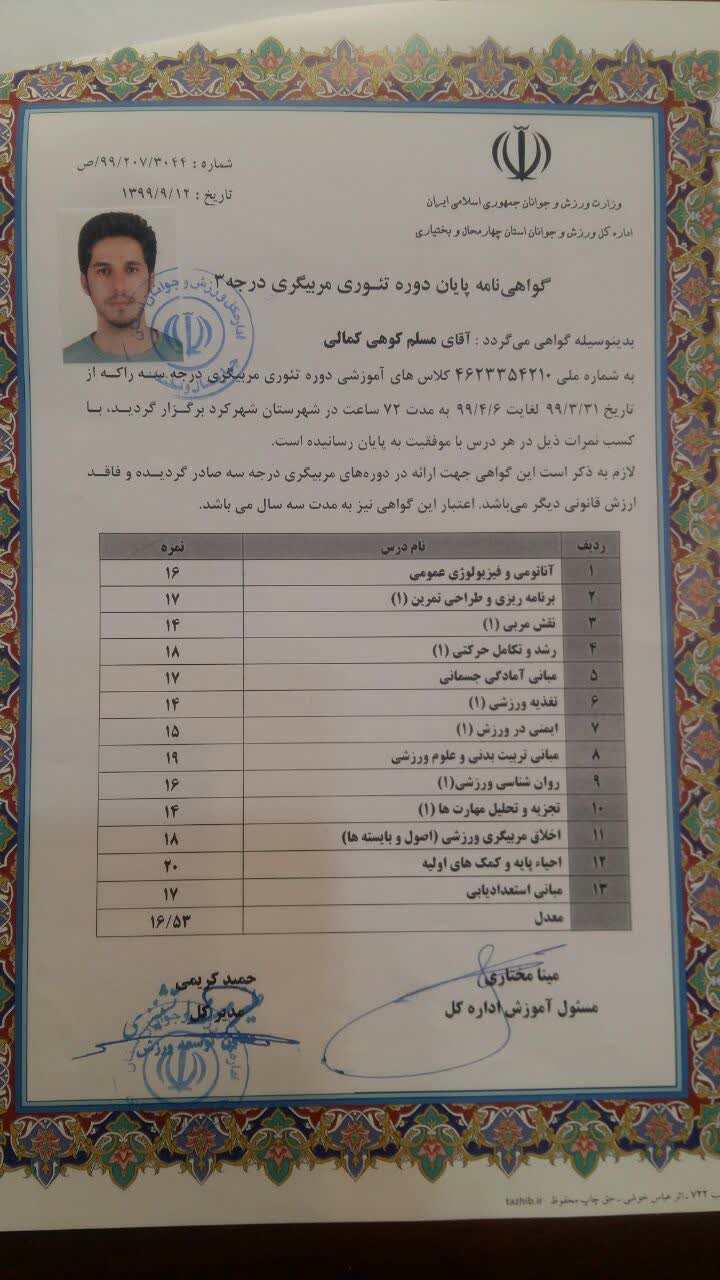 شماره : ۹۹/۲۰۷/۳۰۴۴/ص
تاریخ : ۱۳۹۹/۹/۱۲
وزارت ورزش و جوانان جمهوری اسلامی ایران
اداره کل ورزش و جوانان استان چهارمحال و بختیاری
گواهی‌نامه پایان دوره تئوری مربیگری درجه۳
بدینوسیله گواهی می‌گردد : آقای مسلم کوهی کمالی
به شماره ملی ۴۶۲۳۳۵۴۲۱۰ کلاس های آموزشی دوره تئوری مربیگری درجه سه راکه از
تاریخ ۹۹/۳/۳۱ لغایت ۹۹/۴/۶ به مدت ۷۲ ساعت در شهرستان شهرکرد برگزار گردید، با
کسب نمرات ذیل در هر درس با موفقیت به پایان رسانیده است.
لازم به ذکر است این گواهی جهت ارائه در دوره‌های مربیگری درجه سه صادر گردیده و فاقد
ارزش قانونی دیگر می‌باشد. اعتبار این گواهی نیز به مدت سه سال می باشد.
ردیف نام درس نمره
۱ آناتومی و فیزیولوژی عمومی ۱۶
۲ برنامه ریزی و طراحی تمرین (۱) ۱۷
۳ نقش مربی (۱) ۱۴
۴ رشد و تکامل حرکتی (۱) ۱۸
۵ مبانی آمادگی جسمانی ۱۷
۶ تغذیه ورزشی (۱) ۱۴
۷ ایمنی در ورزش (۱) ۱۵
۸ مبانی تربیت بدنی و علوم ورزشی ۱۹
۹ روان شناسی ورزشی(۱) ۱۶
۱۰ تجزیه و تحلیل مهارت ها (۱) ۱۴
۱۱ اخلاق مربیگری ورزشی (اصول و بایسته ها) ۱۸
۱۲ احیاء پایه و کمک های اولیه ۲۰
۱۳ مبانی استعدادیابی ۱۷
معدل ۱۶/۵۳
مینا مختاری
مسئول آموزش اداره کل
حمید کریمی
مدیر کل
توسعه ورزش
۷۲۲ ـ اثر عباس خوشی ـ حق چاپ محفوظ tazhib.ir